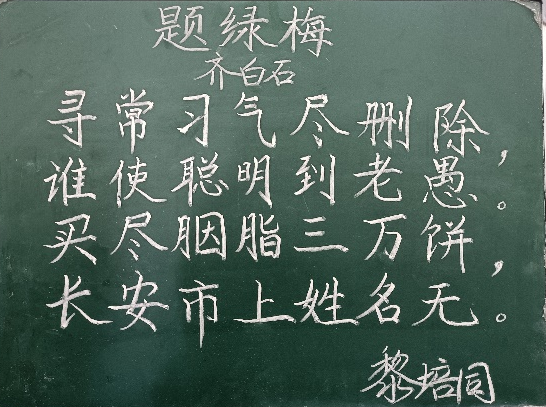 题绿梅
齐白石
寻常习气尽删除，
谁使聪明到老愚。
买尽胭脂三万饼，
长安市上姓名无。
黎培同